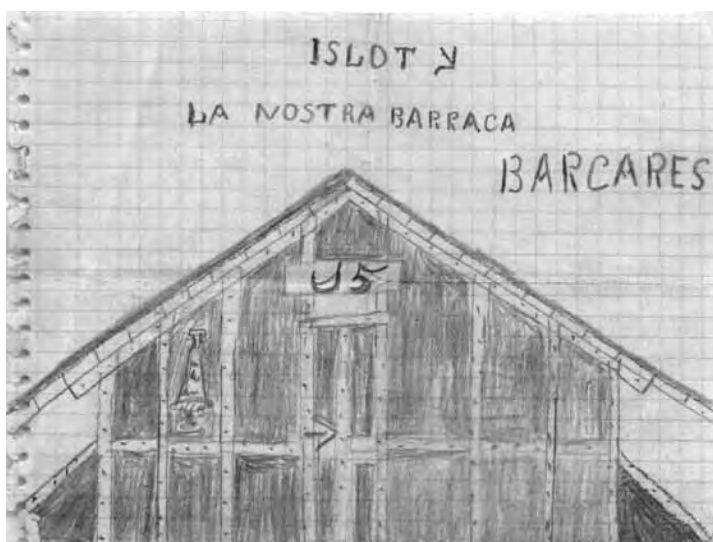 ISLOT
LA NOSTRA BARRACA
BARCARES
U5